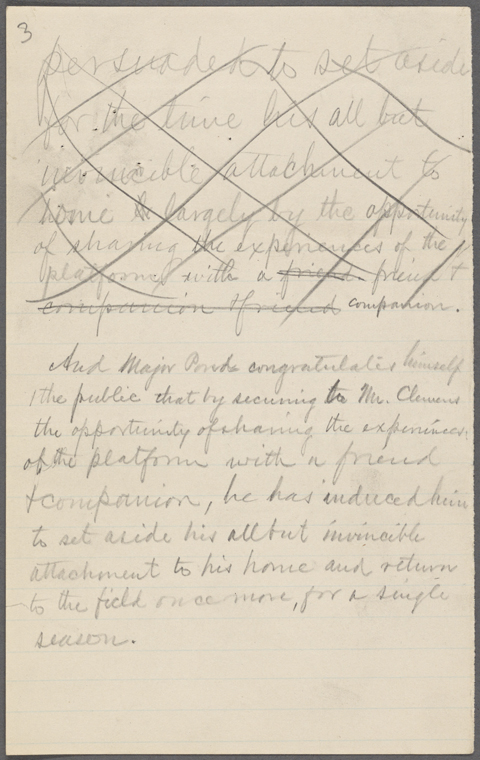 3
persuaded to set aside
for the time his all but
invincible attachment to
home & largely by the opportunity
of sharing the experiences of the
platform with a friend friend &
companion & friend companion.
And Major Pond congratulates himself
& the public that by securing to Mr. Clemens
the opportunity of sharing the experiences
of the platform with a friend
& companion, he has induced him
to set aside his all but invincible
attachment to his home and return
to the field once more, for a single
season.